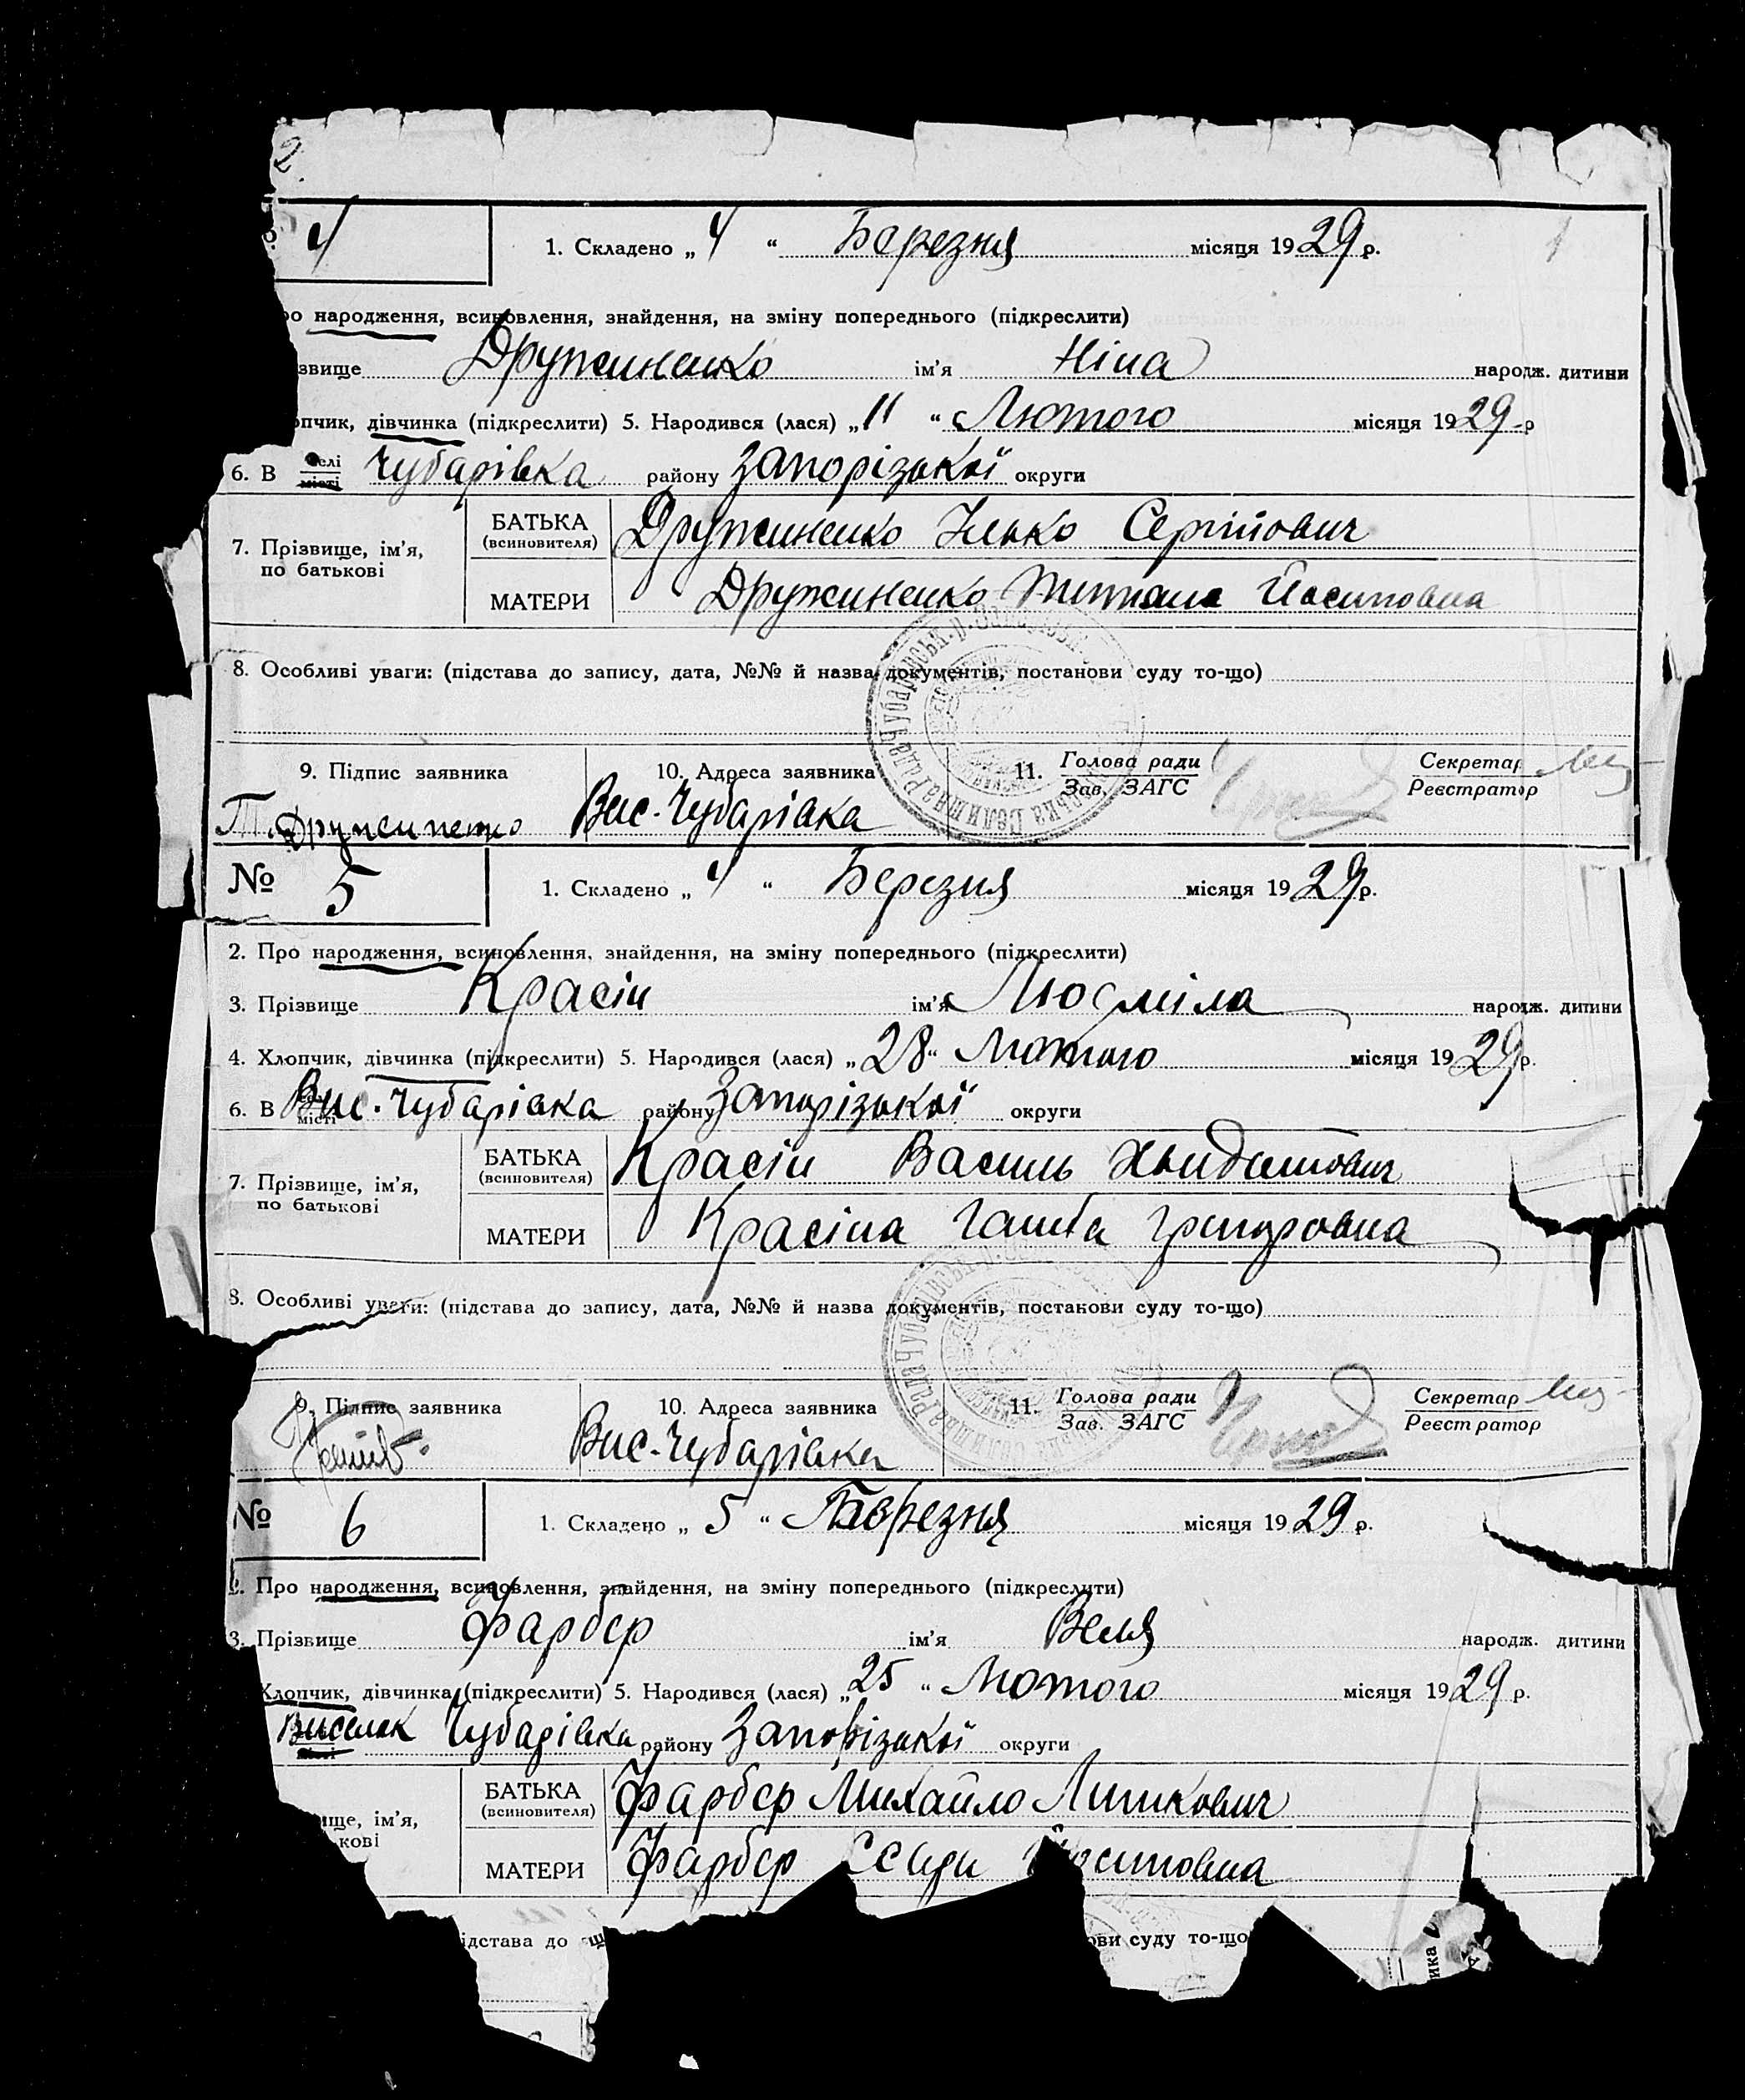 2.
4
1. Складено „ 4 “ Березня місяця 1929 р.
народження, всиновлення, знайдення, на зміну попереднього (підкреслити)
звище Дружиненко ім’я Ніна народж. дитини
опчик, дівчинка (підкреслити) 5. Народився (лася) „ 11 “ Лютого місяця 1929 р
6. В селі місті Чубарівка району Запорізької округи
7. Прізвище, ім’я, по батькові
БАТЬКА (всиновителя) Дружиненко Ілько Сергійович
МАТЕРИ Дружиненко Тетяна Йосиповна
8. Особливі уваги: (підстава до запису, дата, №№ й назва документів, постанови суду то-що)
9. Підпис заявника 10. Адреса заявника 11. Голова ради Секретар
Зав. ЗАГС Реєстратор
Т. Дружиненко Вис. Чубарівка
№ 5
1. Складено „ 4 “ Березня місяця 1929 р.
2. Про народження, всиновлення, знайдення, на зміну попереднього (підкреслити)
3. Прізвище Красін ім’я Людміла народж. дитини
4. Хлопчик, дівчинка (підкреслити) 5. Народився (лася) „ 28 “ Лютого місяця 1929 р.
6. В місті Вис. Чубарівка району Запорізької округи
7. Прізвище, ім’я, по батькові
БАТЬКА (всиновителя) Красін Василь
МАТЕРИ Красіна Григоровна
8. Особливі уваги: (підстава до запису, дата, №№ й назва документів, постанови суду то-що)
9. Підпис заявника 10. Адреса заявника 11. Голова ради Секретар
Зав. ЗАГС Реєстратор
Вис. Чубарівка
№ 6
1. Складено „ 5 “ Березня місяця 1929 р.
2. Про народження, всиновлення, знайдення, на зміну попереднього (підкреслити)
3. Прізвище Фарбер ім’я Веля народж. дитини
Хлопчик, дівчинка (підкреслити) 5. Народився (лася) „ 25 “ Лютого місяця 1929 р.
Виселок Чубарівка району Запорізької округи
ище, ім’я,
кові
БАТЬКА (всиновителя) Фарбер Михайло
МАТЕРИ Фарбер
ідстава до ови суду то-що